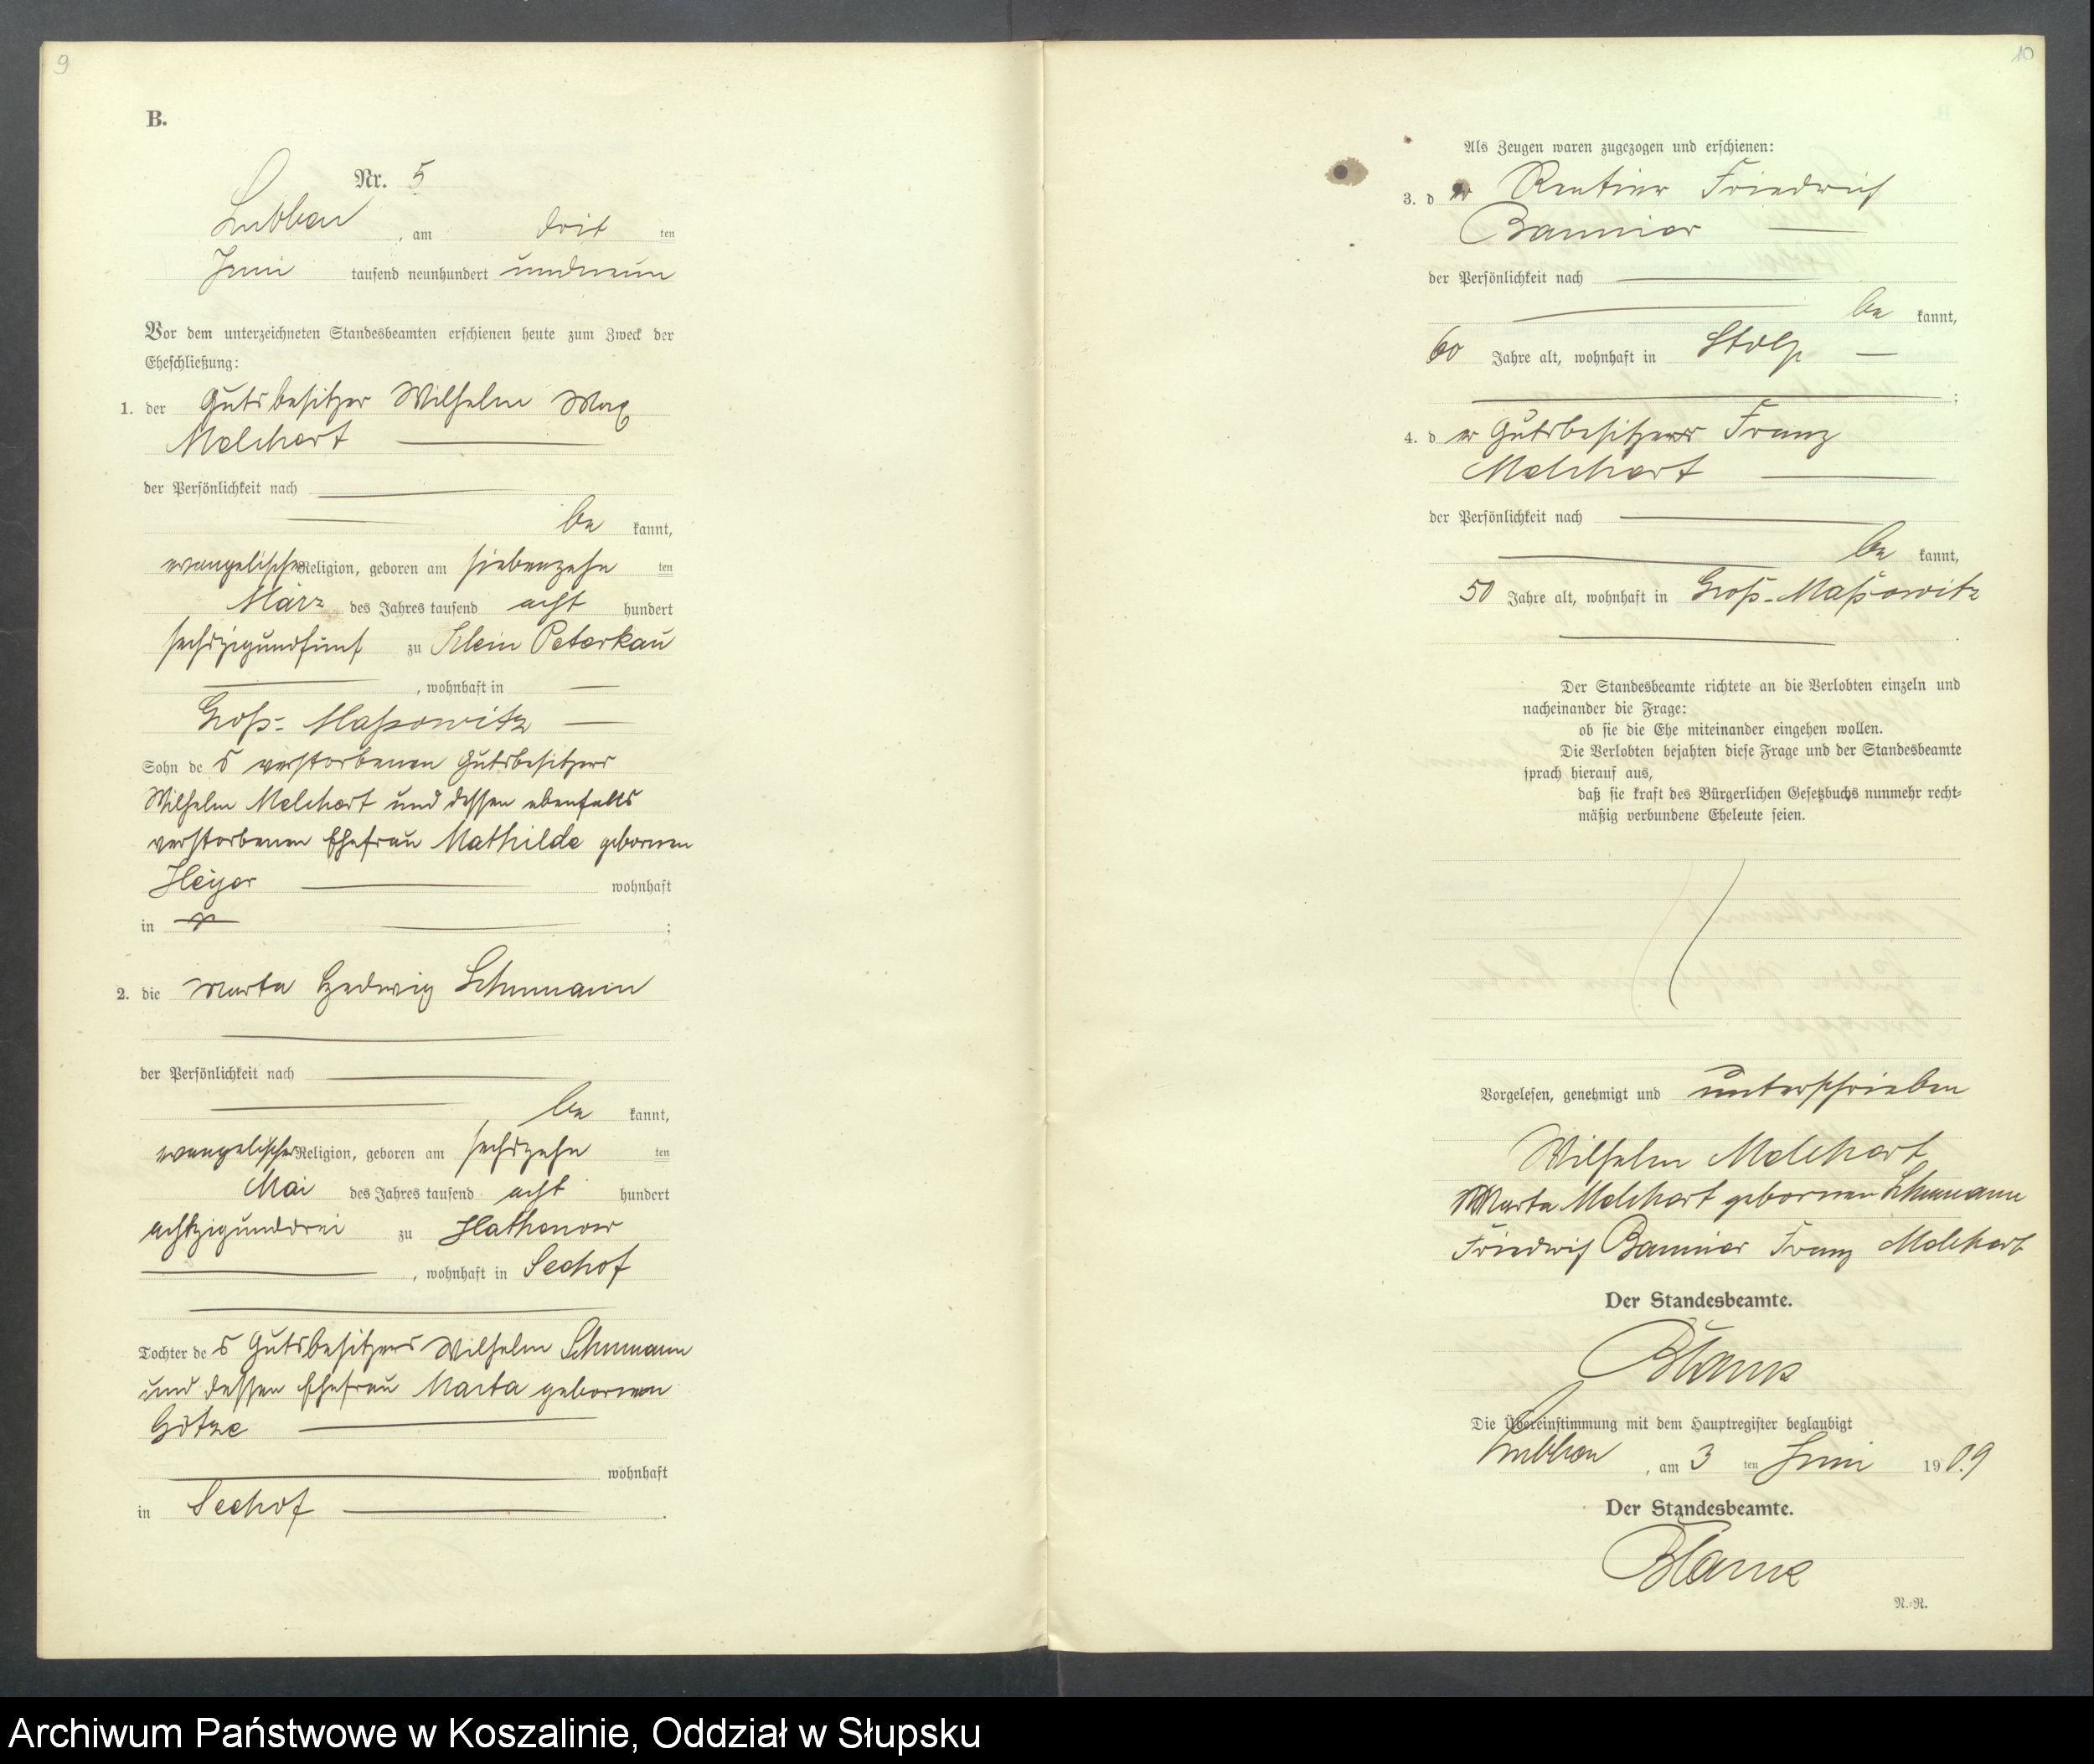 9
B.
Nr. 5
Lubben, am drit ten
Juni tausend neunhundert undneun
Vor dem unterzeichneten Standesbeamten erschienen heute zum Zweck der
Eheschließung:
1. der Gutsbesitzer Wilhelm Max
Melchert
der Persönlichkeit nach
be kannt,
evangelischer Religion, geboren am siebenzehn ten
März des Jahres tausend acht hundert
sechzigundfünf zu Klein Peterkau
, wohnhaft in
Groß-Massowitz
Sohn des verstorbenen Gutsbesitzers
Wilhelm Melchert und dessen ebenfalls
verstorbenen Ehefrau Mathilde geborenen
Heyer wohnhaft
in ;
2. die Marta Hedwig Schumann
der Persönlichkeit nach
be kannt,
evangelischer Religion, geboren am sechszehn ten
Mai des Jahres tausend acht hundert
achtzigunddrei zu Hathenow
, wohnhaft in Seehof
Tochter des Gutsbesitzers Wilhelm Schumann
und dessen Ehefrau Marta geborenen
Götze
wohnhaft
in Seehof.
10
Als Zeugen waren zugezogen und erschienen:
3. der Rentier Friedrich
Bannier
der Persönlichkeit nach
be kannt,
60 Jahre alt, wohnhaft in Stolp
;
4. der Gutsbesitzer Franz
Melchert
der Persönlichkeit nach
be kannt,
50 Jahre alt, wohnhaft in Groß-Massowitz
.
Der Standesbeamte richtete an die Verlobten einzeln und
nacheinander die Frage:
ob sie die Ehe miteinander eingehen wollen.
Die Verlobten bejahten diese Frage und der Standesbeamte
sprach hierauf aus,
daß sie kraft des Bürgerlichen Gesetzbuchs nunmehr recht=
mäßig verbundene Eheleute seien.
Vorgelesen, genehmigt und unterschrieben
Wilhelm Melchert
Marta Melchert geborenen Schumann
Friedrich Bannier Franz Melchert
Der Standesbeamte.
Die Übereinstimmung mit dem Hauptregister beglaubigt
Lubben, am 3 ten Juni 1909
Der Standesbeamte.
N.=R.
Archiwum Państwowe w Koszalinie, Oddział w Słupsku